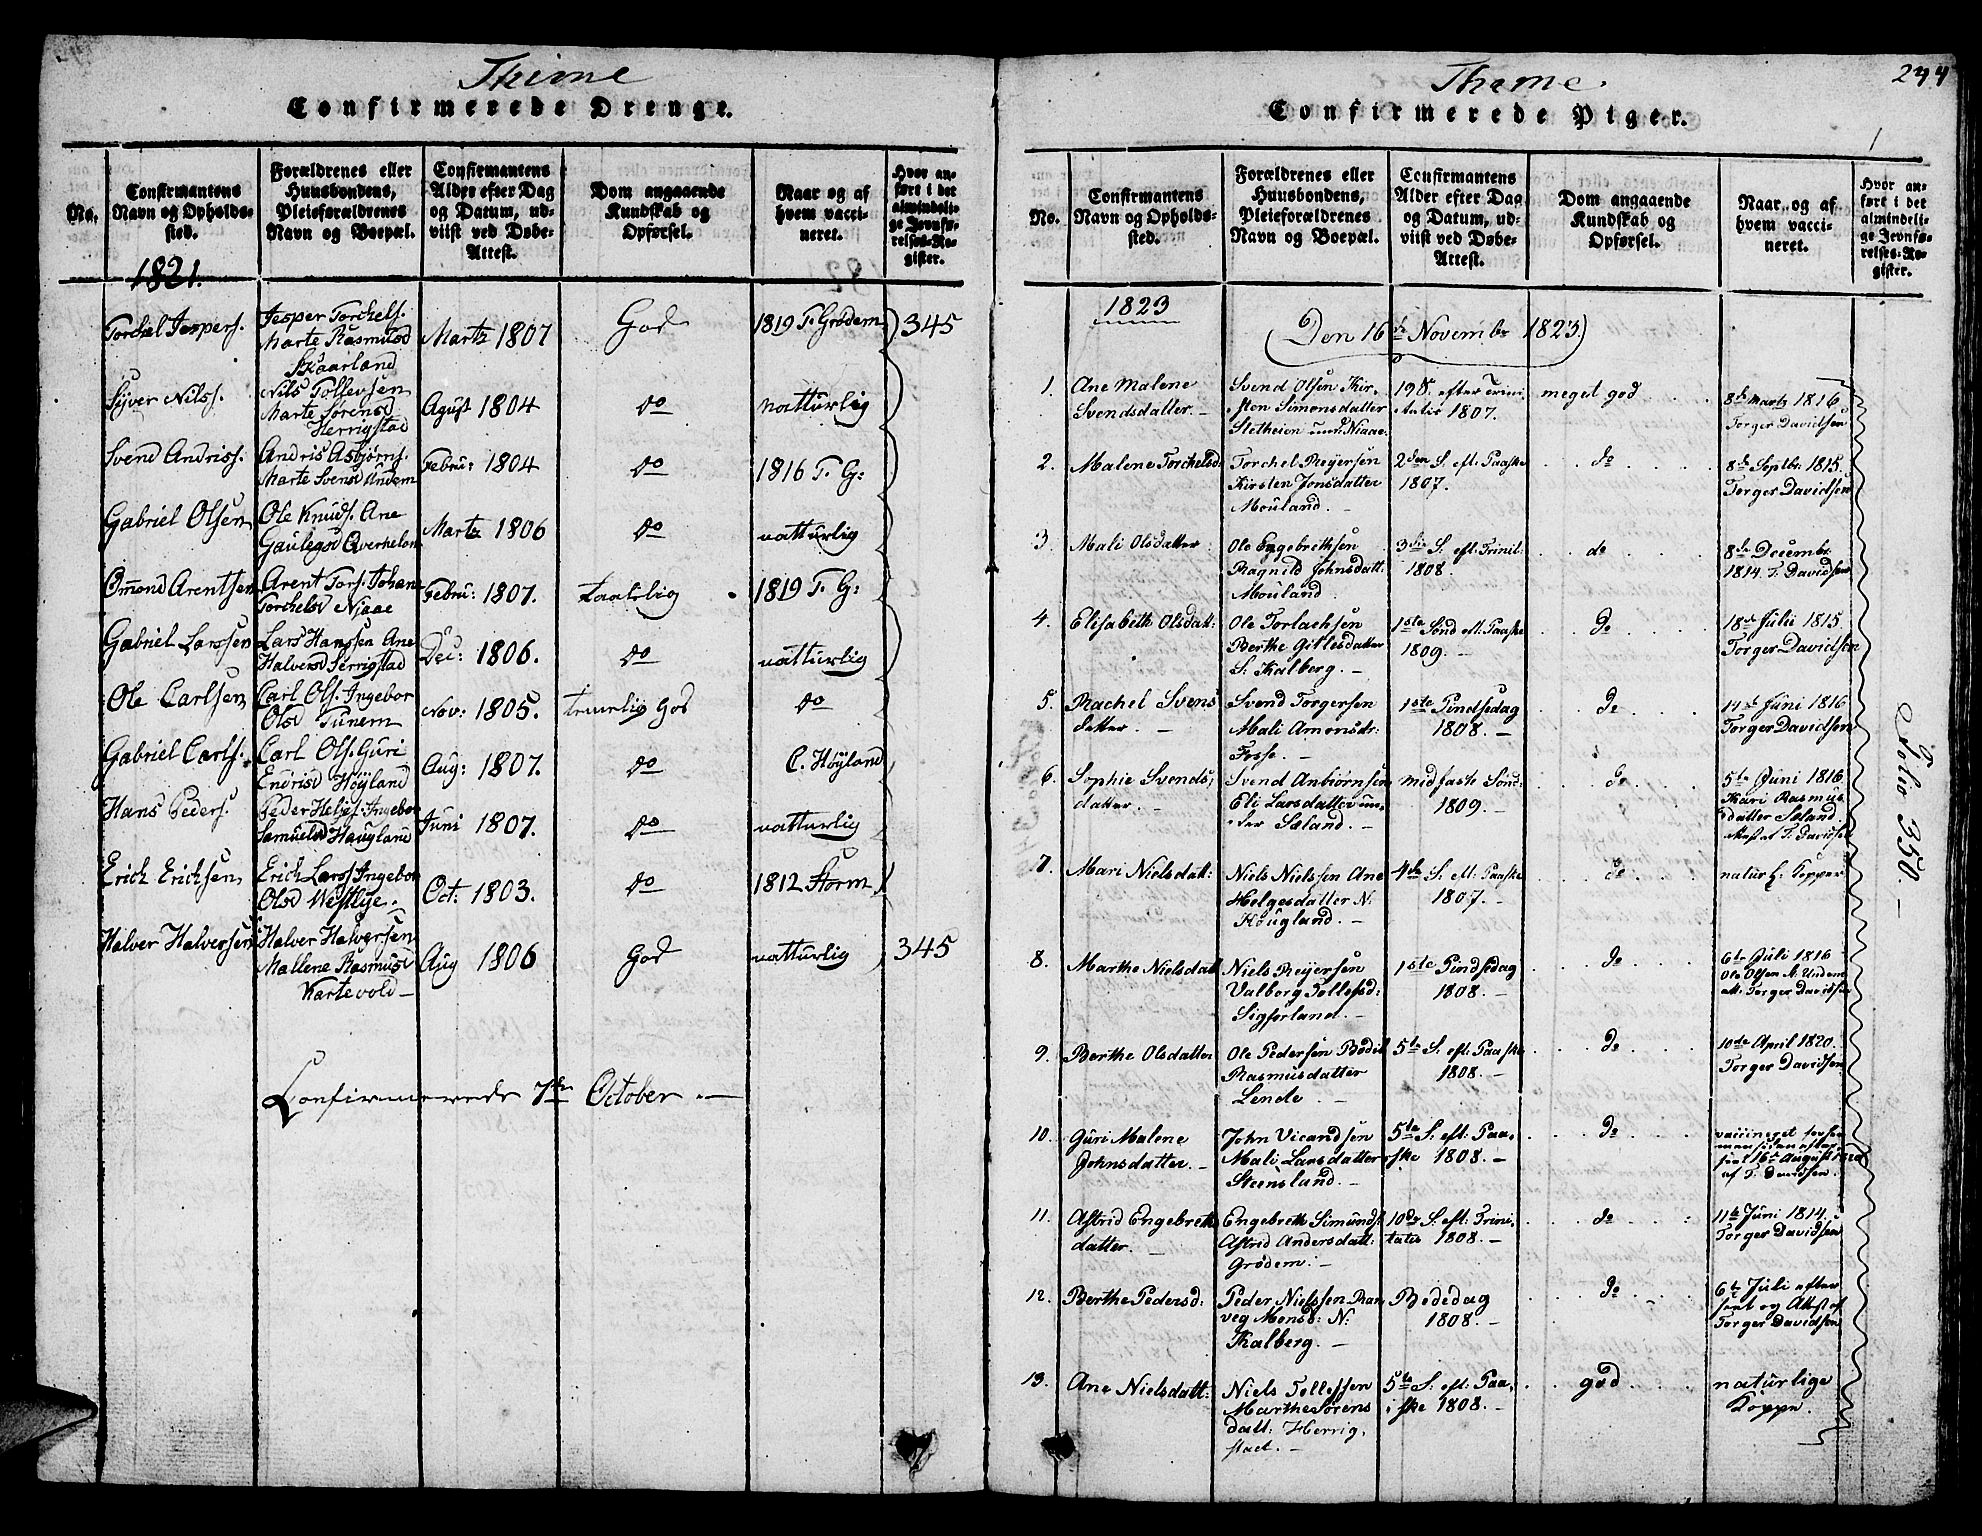 Thime
Confirmerede Drenge.
No.
Confirmantens Navn og Opholdssted.
Forældrenes eller Huusbondens, Pleieforældrenes Navn og Boepæl.
Confirmantens Alder efter Dag og Datum, udviist ved Døbe-Attest.
Dom angaaende Kundskab og Opførsel.
Naar og af hvem vaccineret.
Hvor anført i det almindelige Jevnførelses-Register.
1821.
Torchel Jespers. Jesper Torchels. Marte Rasmusd Skaarland Martz 1807 God 1819 T. Grødem 345
Syver Nilss. Nils Tollevsen Marte Sørensd Herrigstad Agust 1804 do natturlig
Svend Andriss. Andris Asbjørns. Marte Svensd Undem Febru: 1804 do 1816 T. G:
Gabriel Olsen Ole Knuds. Ane Martz 1806 do natturlig
Omond Arentsen Arent Tors. Johan Torchelsd Niaae Febru: 1807. taalelig 1819 T. G:
Gabriel Larssen Lars Hanssen Ane Halversd Serrigstad Dec: 1806. do natturlig
Ole Carlsen Carl Ols. Ingebor Olsd Tunem Nov: 1805. temelig God do
Gabriel Carls. Carl Ols. Guri Endrisd Høyland Aug: 1807. do C. Høyland
Hans Peders. Peder Heljes. Ingebor Samuelsd Haugland Juni 1807. do natturlig
Erich Erichsen Erich Larss Ingebor Olsd Westlye. Oct: 1803. do 1812 Storm
Halver Halversen Halver Halversen Mallene Rasmusd Kartevold Aug 1806 God natturlig 345
Confirmerede 7de October
Thime
244
Confirmerede Piger.
No.
Confirmantens Navn og Opholdssted.
Forældrenes eller Huusbondens, Pleieforældrenes Navn og Boepæl.
Confirmantens Alder efter Dag og Datum, udviist ved Døbe-Attest.
Dom angaaende Kundskab og Opførsel.
Naar og af hvem vaccineret.
Hvor anført i det almindelige Jevnførelses-Register.
1823
Den 16de Novembr 1823.
1. Ane Malene Svendsdatter. Svend Olsen Kirsten Simonsdatter Stetheien und. Niaae. 19 S. efter Trinitatis 1807. meget god 8de Martz 1816 Torger Davidsen
2. Malene Torchelsd Torchel Reyersen Kirsten Jonsdatter Mouland. 2den S. eft. Paaske 1807. do 8de Septbr. 1815. Torger Davidsen
3. Mali Olsdatter Ole Engebrethsen Ragnild Johnsdatt: Mouland. 3die S. eft. Trinit: 1808. do 8de Decembr. 1814. T. Davidsen
4. Elisabeth Olsdatt: Ole Torlachsen Berthe Gitlesdatter S. Kalberg. 1ste Sønd eft. Paaske 1809. do 18de Julii 1815. Torger Davidsen
5. Rachel Svensdatter. Svend Torgersen Mali Amonsdr: Fosse. 1ste Pindsedag 1808. do 14de Juni 1816 Torger Davidsen
6. Sophie Svendsdatter. Svend Anbiørnsen Eli Larsdatter under Sæland. midfaste Sønd: 1809. do 5te Juni 1816 Kari Rasmusdatter Sæland. Attest af T. Davidsen
7. Mari Nielsdatt: Niels Nielssen Ane Helgesdatter N. Hougland. 4de S. eft. Paaske 1807. do naturl. Kopper
8. Marthe Nielsdatt Niels Reyersen Valborg Tollefsd: Sigforland. 1ste Pindsedag 1808. do 6te Juli 1816 Ole Olsen N. Undem att. Torger Davidsen
9. Berthe Olsdatter Ole Pedersen Bodil Rasmusdatter Lende. 5te S. eft: Paaske 1808. do 10de April 1820. Torger Davidsen
10. Guri Malene Johnsdatter. John Vicandsen Mali Larsdatter Steensland. 5te S. eft: Paaske 1808. do vaccineret 16de August af T. Davidsen.
11. Astrid Engebrethsdatter. Engebreth Simunds: Astrid Andersdatt: Grødem. 10de S. eft: Trinitatis 1808. do 11te Juni 1814. Torger Davidsen
12. Berthe Pedersd: Peder Nielssen Ranveg Monsd: N: Kalberg. Bededag 1808. do 6te Juli efterseet og Attst af Torger Davidsen
13. Ane Nielsdatt: Niels Tollefsen Marthe Sørensdatt: Herrigstad. 5te S. eft: Paaske 1808. god naturlige Koppe.
Folio 350.